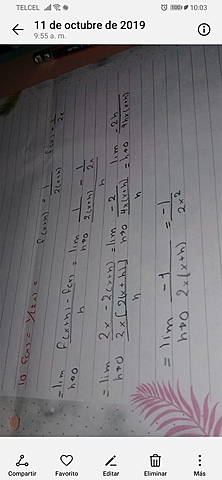 TELCEL
100
10:03
11 de octubre de 2019
9:55 a. m.
10 f(x) = 1/(2x) =
f(x+h) = 1/2(x+h)    f(x) = 1/2x
= lim h→0 f(x+h) - f(x) / h = lim h→0 1/2(x+h) - 1/2x / h
= lim h→0 2x - 2(x+h) / 2x[2(x+h)] / h = lim h→0 -2 / 4x(x+h) / h = lim h→0 -2h / 4hx(x+h)
= lim h→0 -1 / 2x(x+h) = -1 / 2x²
Compartir
Favorito
Editar
Eliminar
Más